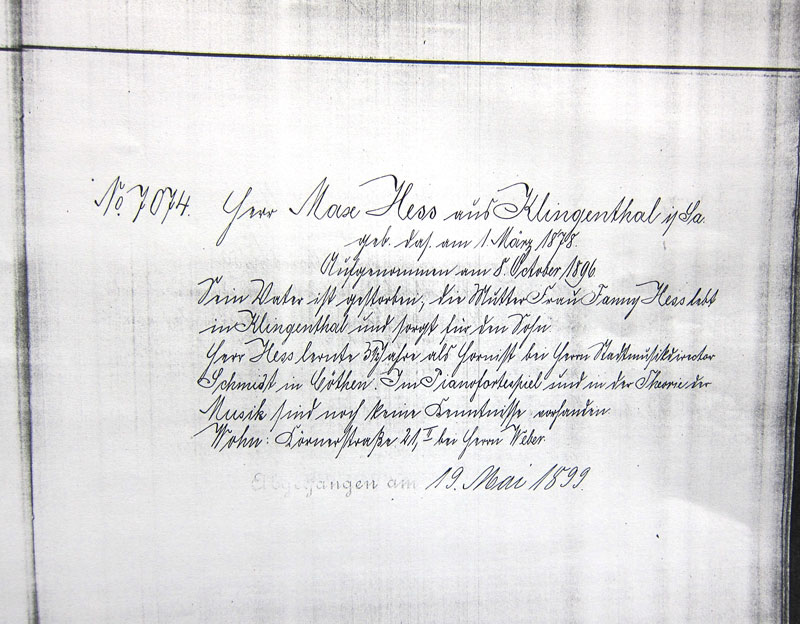 No. 7074. Herr Max Hess aus Klingenthal i/Sa.
geb. das. am 1. März 1878.
Aufgenommen am 8. October 1896
Sein Vater ist gestorben, die Mutter Frau Fanny Hess lebt
in Klingenthal und sorgt für den Sohn.
Herr Hess lernte 3½ Jahre als Hornist bei Herrn Stadtmusikdirector
Schmidt in Cöthen. Im Pianofortespiel und in der Theorie der
Musik sind noch keine Kenntnisse vorhanden.
Wohn: Körnerstraße 21, II bei Herrn Weber.
Abgegangen am 19. Mai 1899.